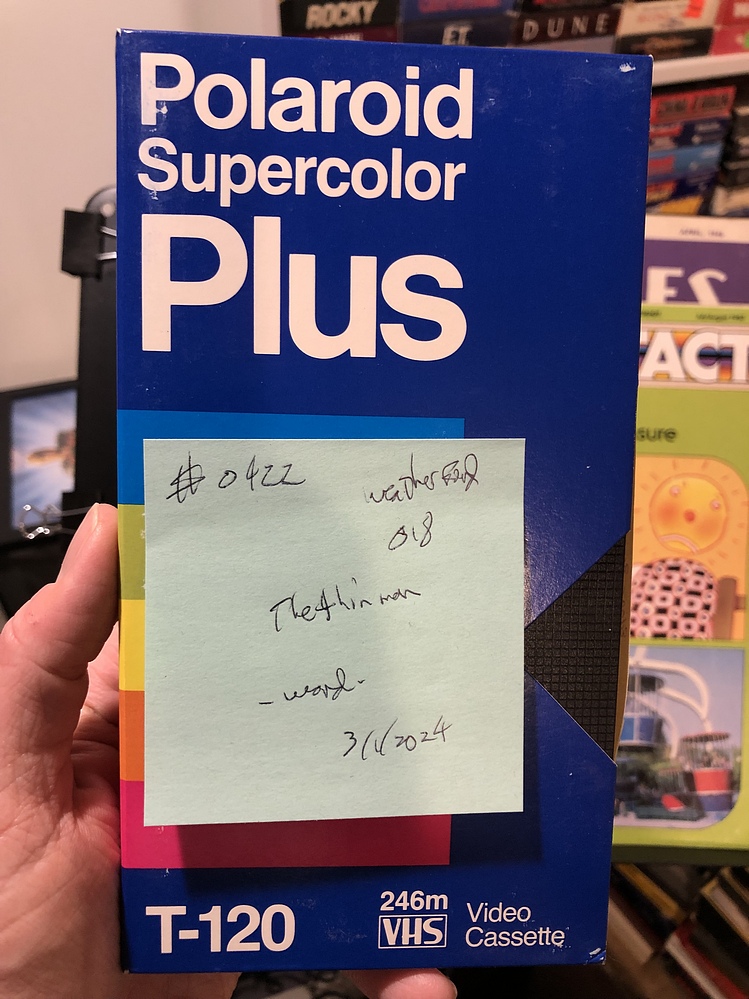 ROCKY
E.T.
DUNE
Polaroid
Supercolor
Plus
ES
TACT
sure
# 0422
018
The thin man
- word -
3/1/2024
T-120
246m
VHS
Video
Cassette